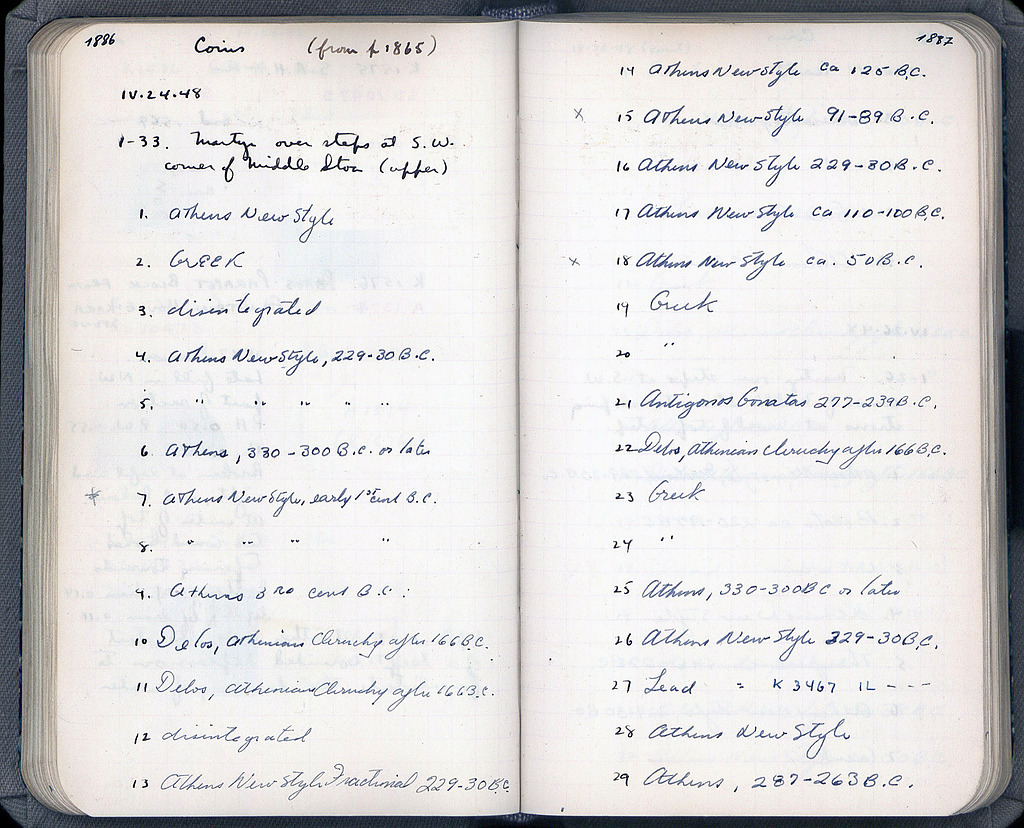 1886
Coins (from p 1865)
IV.24.48
1-33. Martyr over steps at S.W.
corner of Middle Stoa (upper)
1. Athens New Style
2. GREEK
3. disintegrated
4. Athens New Style, 229-30 B.C.
5. " " " " "
6. Athens, 330-300 B.C. or later
* 7. Athens New Style, early 1st cent B.C.
8. " " " "
9. Athens 3RD cent B.C.
10 Delos, Athenian Cleruchy after 166 B.C.
11 Delos, Athenian Cleruchy after 166 B.C.
12 disintegrated
13 Athens New Style Fractional 229-30 B.C.
1887
14 Athens New Style ca 125 B.C.
x 15 Athens New Style 91-89 B.C.
16 Athens New Style 229-30 B.C.
17 Athens New Style ca 110-100 B.C.
x 18 Athens New Style ca. 50 B.C.
19 Greek
20 "
21 Antigonos Gonatas 277-239 B.C.
22 Delos, Athenian Cleruchy after 166 B.C.
23 Greek
24 "
25 Athens, 330-300 BC or later
26 Athens New Style 329-30 B.C.
27 Lead = K 3467 IL - - -
28 Athens New Style
29 Athens, 287-263 B.C.